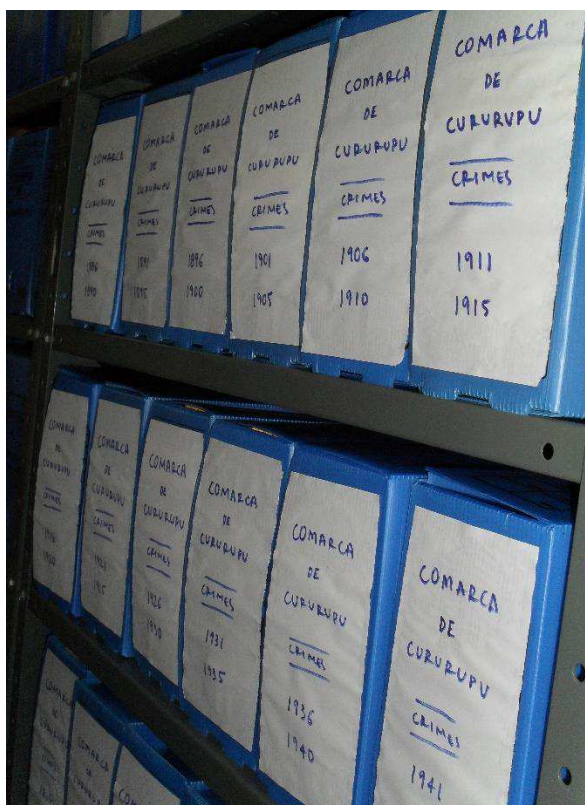 COMARCA
DE
CURURUPU
CRIMES
1886
1890
COMARCA
DE
CURURUPU
CRIMES
1891
1895
COMARCA
DE
CURURUPU
CRIMES
1896
1900
COMARCA
DE
CURURUPU
CRIMES
1901
1905
COMARCA
DE
CURURUPU
CRIMES
1906
1910
COMARCA
DE
CURURUPU
CRIMES
1911
1915
COMARCA
DE
CURURUPU
CRIMES
1916
1920
COMARCA
DE
CURURUPU
CRIMES
1921
1925
COMARCA
DE
CURURUPU
CRIMES
1926
1930
COMARCA
DE
CURURUPU
CRIMES
1931
1935
COMARCA
DE
CURURUPU
CRIMES
1936
1940
COMARCA
DE
CURURUPU
CRIMES
1941
COMARCA
DE
CURURUPU
COMARCA
DE
CURURUPU
COMARCA
DE